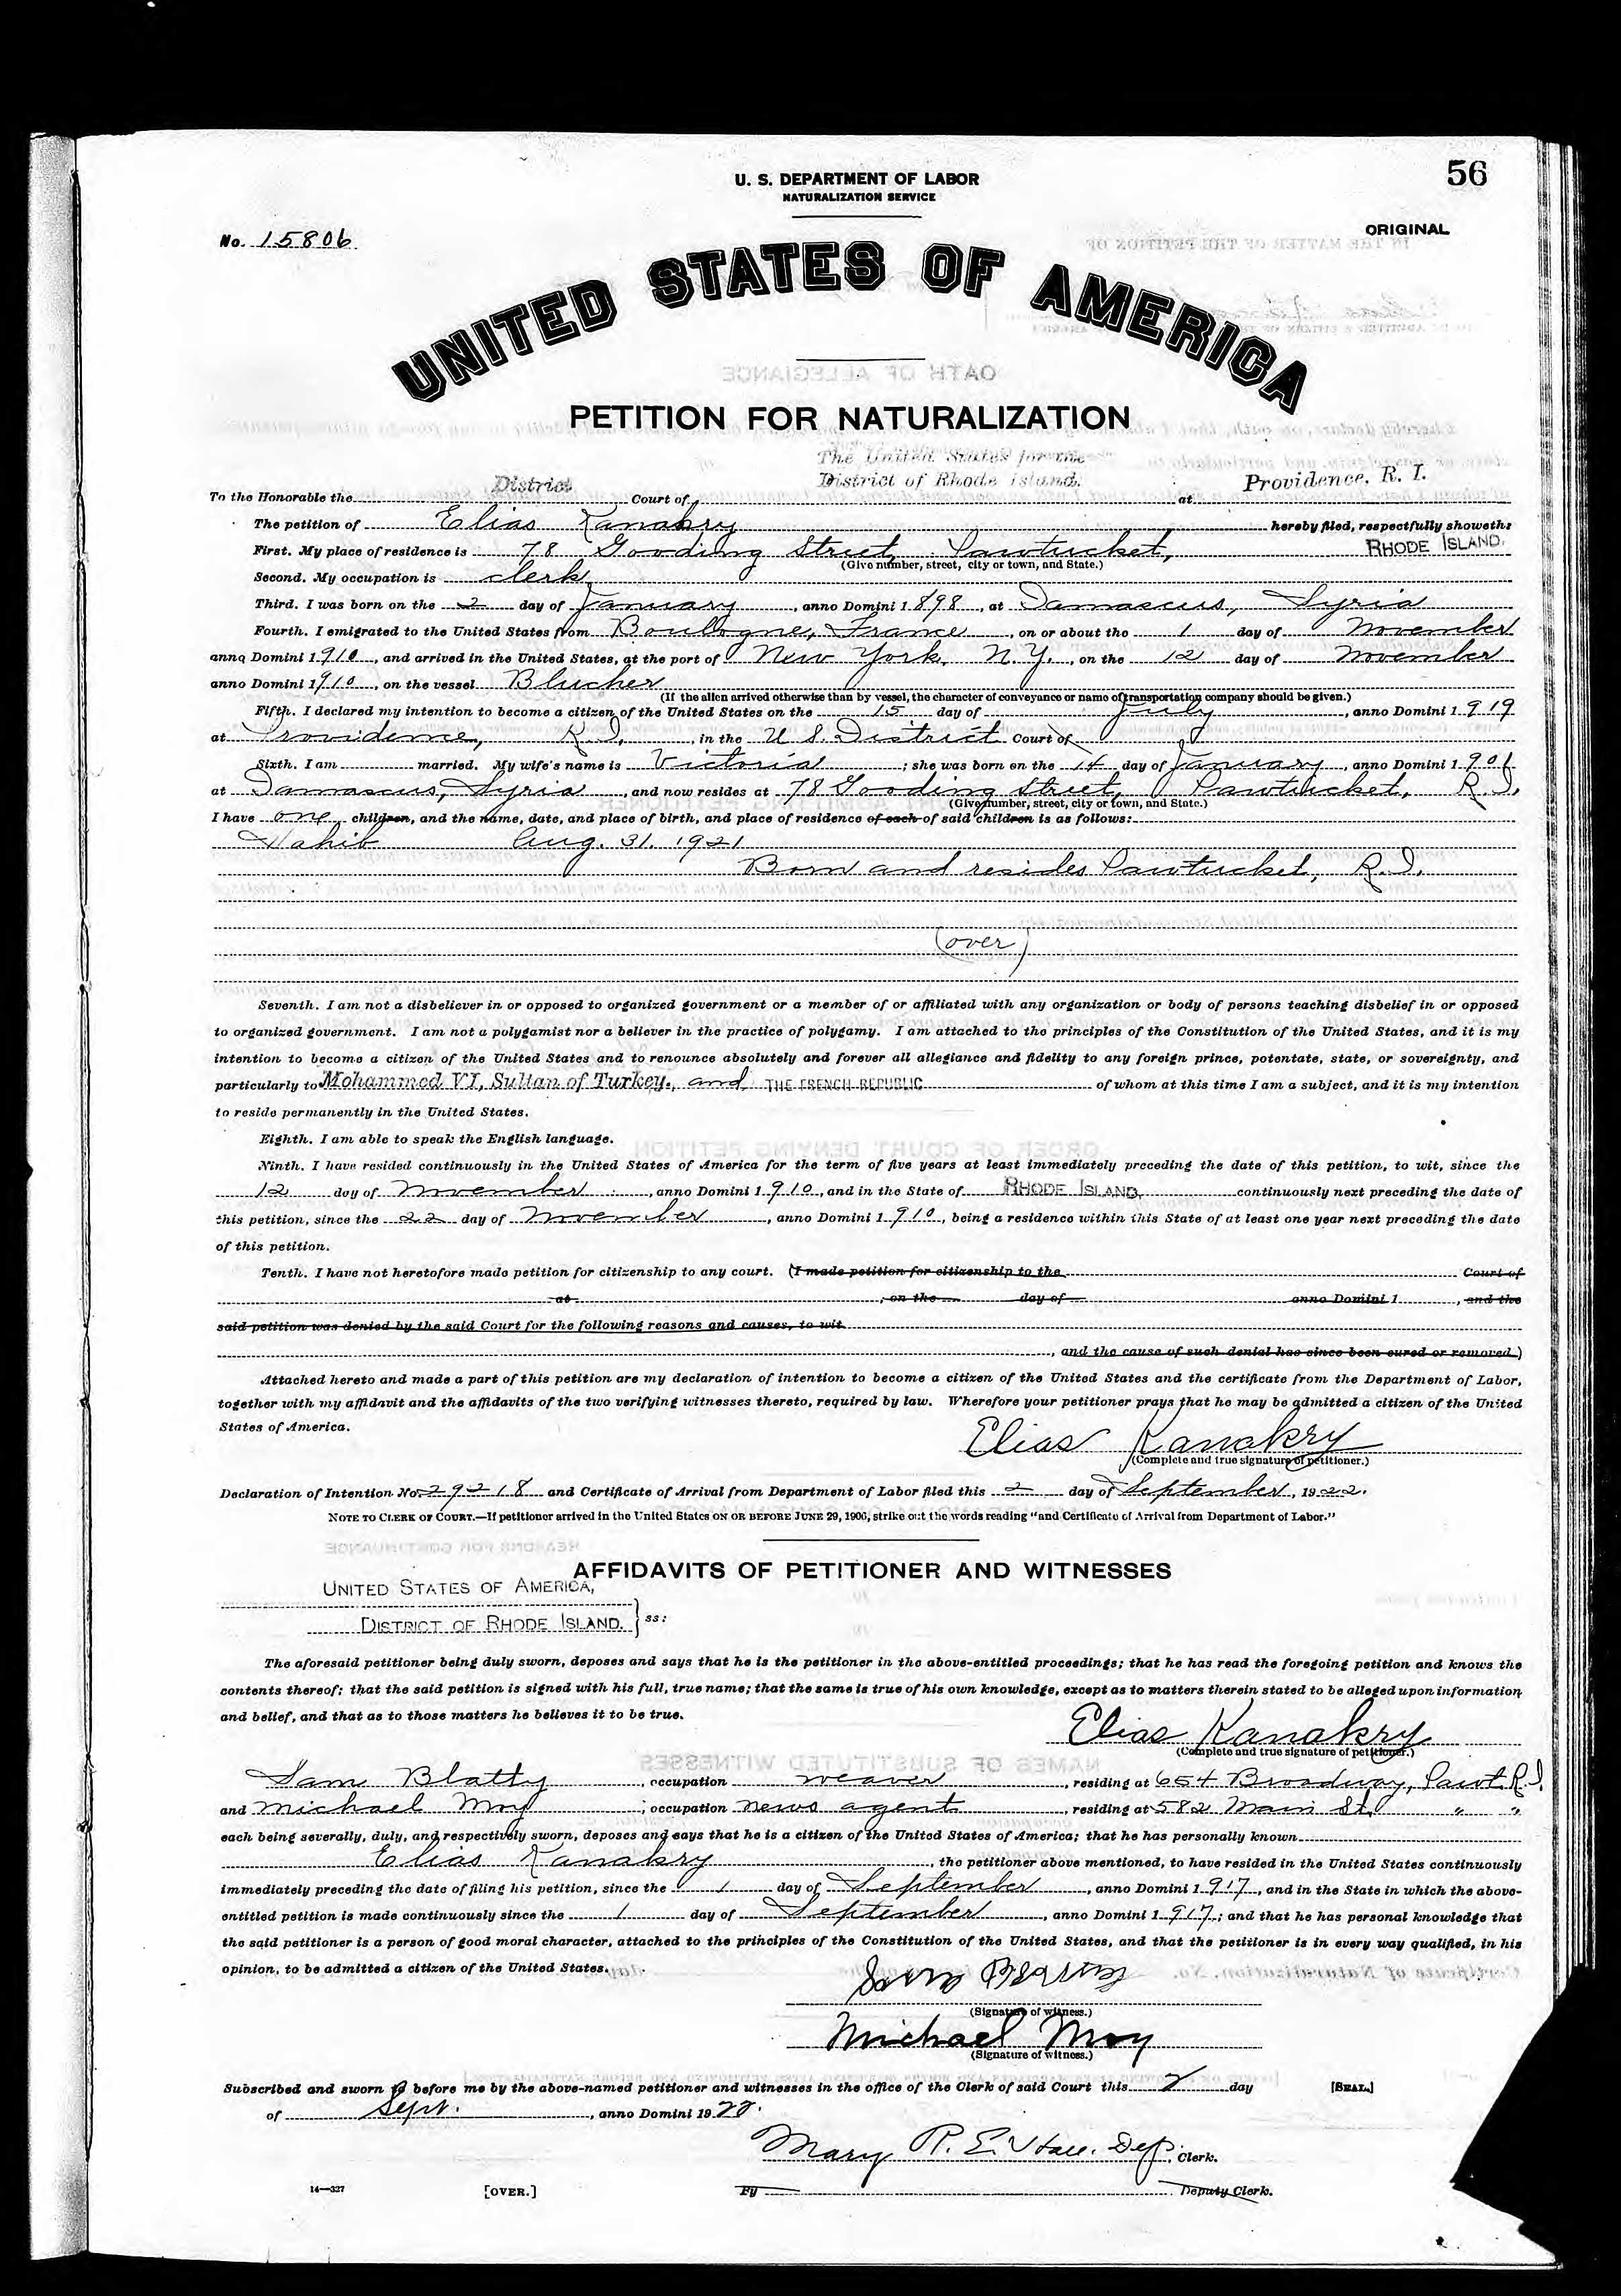 56
U. S. DEPARTMENT OF LABOR
NATURALIZATION SERVICE
No. 15806
ORIGINAL
UNITED STATES OF AMERICA
OATH OF ALLEGIANCE
PETITION FOR NATURALIZATION
The United States for the
To the Honorable the District Court of District of Rhode Island. at Providence, R. I.
The petition of Elias Kanakry hereby filed, respectfully showeth:
First. My place of residence is 78 Gooding Street, Pawtucket, RHODE ISLAND.
(Give number, street, city or town, and State.)
Second. My occupation is clerk
Third. I was born on the 2 day of January, anno Domini 1 898, at Damascus, Syria
Fourth. I emigrated to the United States from Boulogne, France, on or about the 1 day of November
anno Domini 1 910, and arrived in the United States, at the port of New York, N.Y., on the 12 day of November
anno Domini 1 910, on the vessel Blucher
(If the alien arrived otherwise than by vessel, the character of conveyance or name of transportation company should be given.)
Fifth. I declared my intention to become a citizen of the United States on the 15 day of July, anno Domini 1 919
at Providence, R.I., in the U S. District Court of
Sixth. I am married. My wife's name is Victoria; she was born on the 14 day of January, anno Domini 1 901
at Damascus, Syria, and now resides at 78 Gooding Street, Pawtucket, R.I.
(Give number, street, city or town, and State.)
I have one children, and the name, date, and place of birth, and place of residence of each of said children is as follows:
Aug. 31. 1921
Born and resides Pawtucket, R.I.
(over)
Seventh. I am not a disbeliever in or opposed to organized government or a member of or affiliated with any organization or body of persons teaching disbelief in or opposed
to organized government. I am not a polygamist nor a believer in the practice of polygamy. I am attached to the principles of the Constitution of the United States, and it is my
intention to become a citizen of the United States and to renounce absolutely and forever all allegiance and fidelity to any foreign prince, potentate, state, or sovereignty, and
particularly to Mohammed VI, Sultan of Turkey., and THE FRENCH REPUBLIC of whom at this time I am a subject, and it is my intention
to reside permanently in the United States.
Eighth. I am able to speak the English language.
ORDER OF COURT DENYING PETITION
Ninth. I have resided continuously in the United States of America for the term of five years at least immediately preceding the date of this petition, to wit, since the
12 day of November, anno Domini 1 910, and in the State of RHODE ISLAND, continuously next preceding the date of
this petition, since the 22 day of November, anno Domini 1 910, being a residence within this State of at least one year next preceding the date
of this petition.
Tenth. I have not heretofore made petition for citizenship to any court. (I made petition for citizenship to the Court of
at, on the day of anno Domini 1, and the
said petition was denied by the said Court for the following reasons and causes, to wit
, and the cause of such denial has since been cured or removed.)
Attached hereto and made a part of this petition are my declaration of intention to become a citizen of the United States and the certificate from the Department of Labor,
together with my affidavit and the affidavits of the two verifying witnesses thereto, required by law. Wherefore your petitioner prays that he may be admitted a citizen of the United
States of America.
Elias Kanakry
(Complete and true signature of petitioner.)
Declaration of Intention No. 29218 and Certificate of Arrival from Department of Labor filed this 2 day of September, 1922.
NOTE TO CLERK OF COURT.—If petitioner arrived in the United States ON OR BEFORE JUNE 29, 1906, strike out the words reading "and Certificate of Arrival from Department of Labor."
REASONS FOR CONTINUANCE
AFFIDAVITS OF PETITIONER AND WITNESSES
UNITED STATES OF AMERICA,
DISTRICT OF RHODE ISLAND. } ss:
The aforesaid petitioner being duly sworn, deposes and says that he is the petitioner in the above-entitled proceedings; that he has read the foregoing petition and knows the
contents thereof; that the said petition is signed with his full, true name; that the same is true of his own knowledge, except as to matters therein stated to be alleged upon information
and belief, and that as to those matters he believes it to be true.
Elias Kanakry
(Complete and true signature of petitioner.)
NAMES OF SUBSTITUTED WITNESSES
Sam Blatty, occupation weaver, residing at 654 Broadway, Pawt. R.I.
and Michael Moy; occupation news agent, residing at 582 Main St. " "
each being severally, duly, and respectively sworn, deposes and says that he is a citizen of the United States of America; that he has personally known
Elias Kanakry, the petitioner above mentioned, to have resided in the United States continuously
immediately preceding the date of filing his petition, since the 1 day of September, anno Domini 1 917, and in the State in which the above-
entitled petition is made continuously since the 1 day of September, anno Domini 1 917; and that he has personal knowledge that
the said petitioner is a person of good moral character, attached to the principles of the Constitution of the United States, and that the petitioner is in every way qualified, in his
opinion, to be admitted a citizen of the United States.
(Signature of witness.)
Michael Moy
(Signature of witness.)
Subscribed and sworn to before me by the above-named petitioner and witnesses in the office of the Clerk of said Court this 2 day [SEAL.]
of Sept., anno Domini 19 22.
Mary P. E. Dep. Clerk.
14—327 [OVER.] By Deputy Clerk.